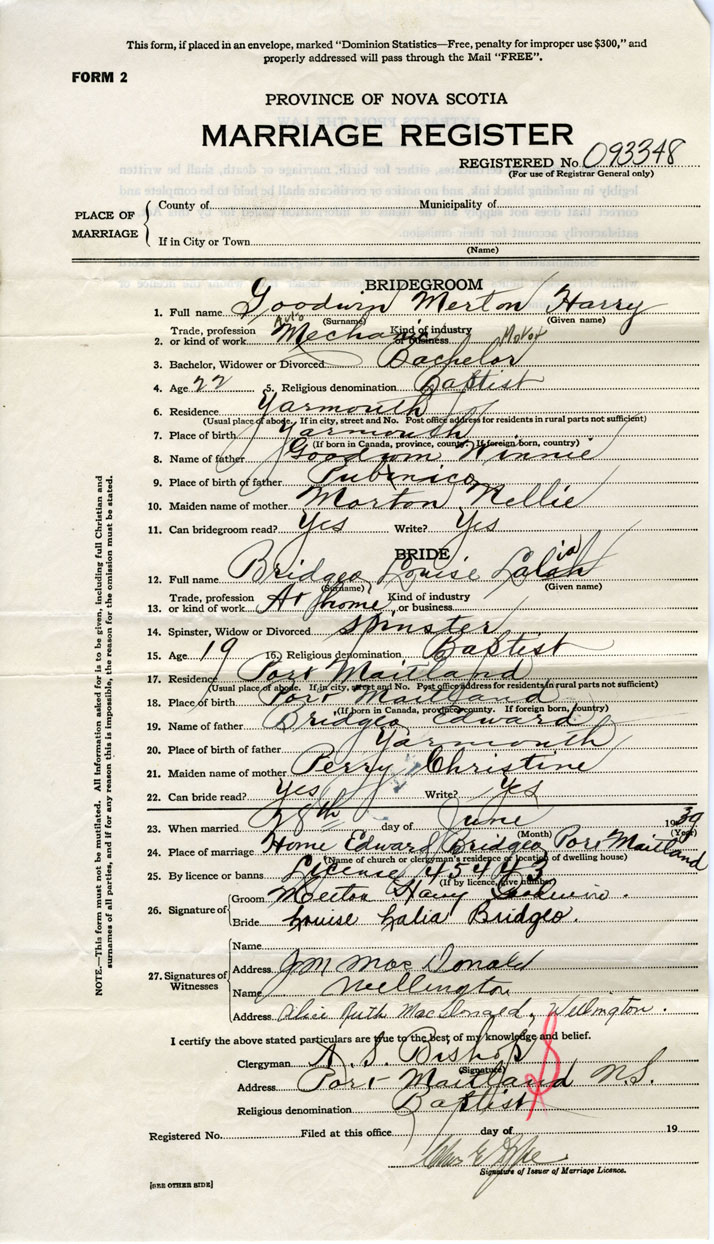 This form, if placed in an envelope, marked "Dominion Statistics—Free, penalty for improper use $300," and
properly addressed will pass through the Mail "FREE".
FORM 2
PROVINCE OF NOVA SCOTIA
MARRIAGE REGISTER
REGISTERED No. 093348
(For use of Registrar General only)
PLACE OF MARRIAGE
County of Municipality of
If in City or Town
(Name)
BRIDEGROOM
1. Full name Goodwin Merton Harry
(Surname) (Given name)
2. Trade, profession or kind of work Auto Mechanic Kind of industry or business Motor
3. Bachelor, Widower or Divorced Bachelor
4. Age 22 5. Religious denomination Baptist
6. Residence Yarmouth
(Usual place of abode. If in city, street and No. Post office address for residents in rural parts not sufficient)
7. Place of birth Yarmouth
(If born in Canada, province, county. If foreign born, country)
8. Name of father Goodwin Winnie
9. Place of birth of father Pubnico
10. Maiden name of mother Morton Nellie
11. Can bridegroom read? Yes Write? Yes
BRIDE
12. Full name Bridgeo Louise Lalia
(Surname) (Given name)
13. Trade, profession or kind of work At home Kind of industry or business
14. Spinster, Widow or Divorced Spinster
15. Age 19 16. Religious denomination Baptist
17. Residence Port Maitland
(Usual place of abode. If in city, street and No. Post office address for residents in rural parts not sufficient)
18. Place of birth Port Maitland
(If born in Canada, province, county. If foreign born, country)
19. Name of father Bridgeo Edward
20. Place of birth of father Yarmouth
21. Maiden name of mother Perry Christine
22. Can bride read? Yes Write? Yes
23. When married 28th day of June 1939
(Month) (Year)
24. Place of marriage Home Edward Bridgeo Port Maitland
(Name of church or clergyman's residence or location of dwelling house)
25. By licence or banns License 45443
(If by licence, give number)
26. Signature of
Groom Merton Harry Goodwin.
Bride Louise Lalia Bridgeo.
27. Signatures of Witnesses
Name
Address J M Mac Donald
Name Wellington
Address Alice Ruth MacDonald, Wellington.
I certify the above stated particulars are true to the best of my knowledge and belief.
Clergyman A. S. Bishop
(Signature)
Address Port Maitland N.S.
Religious denomination Baptist
Registered No. Filed at this office day of 19
Signature of Issuer of Marriage Licence.
[SEE OTHER SIDE]
NOTE.—This form must not be mutilated. All information asked for is to be given, including full Christian and
surnames of all parties, and if for any reason this is impossible, the reason for the omission must be stated.